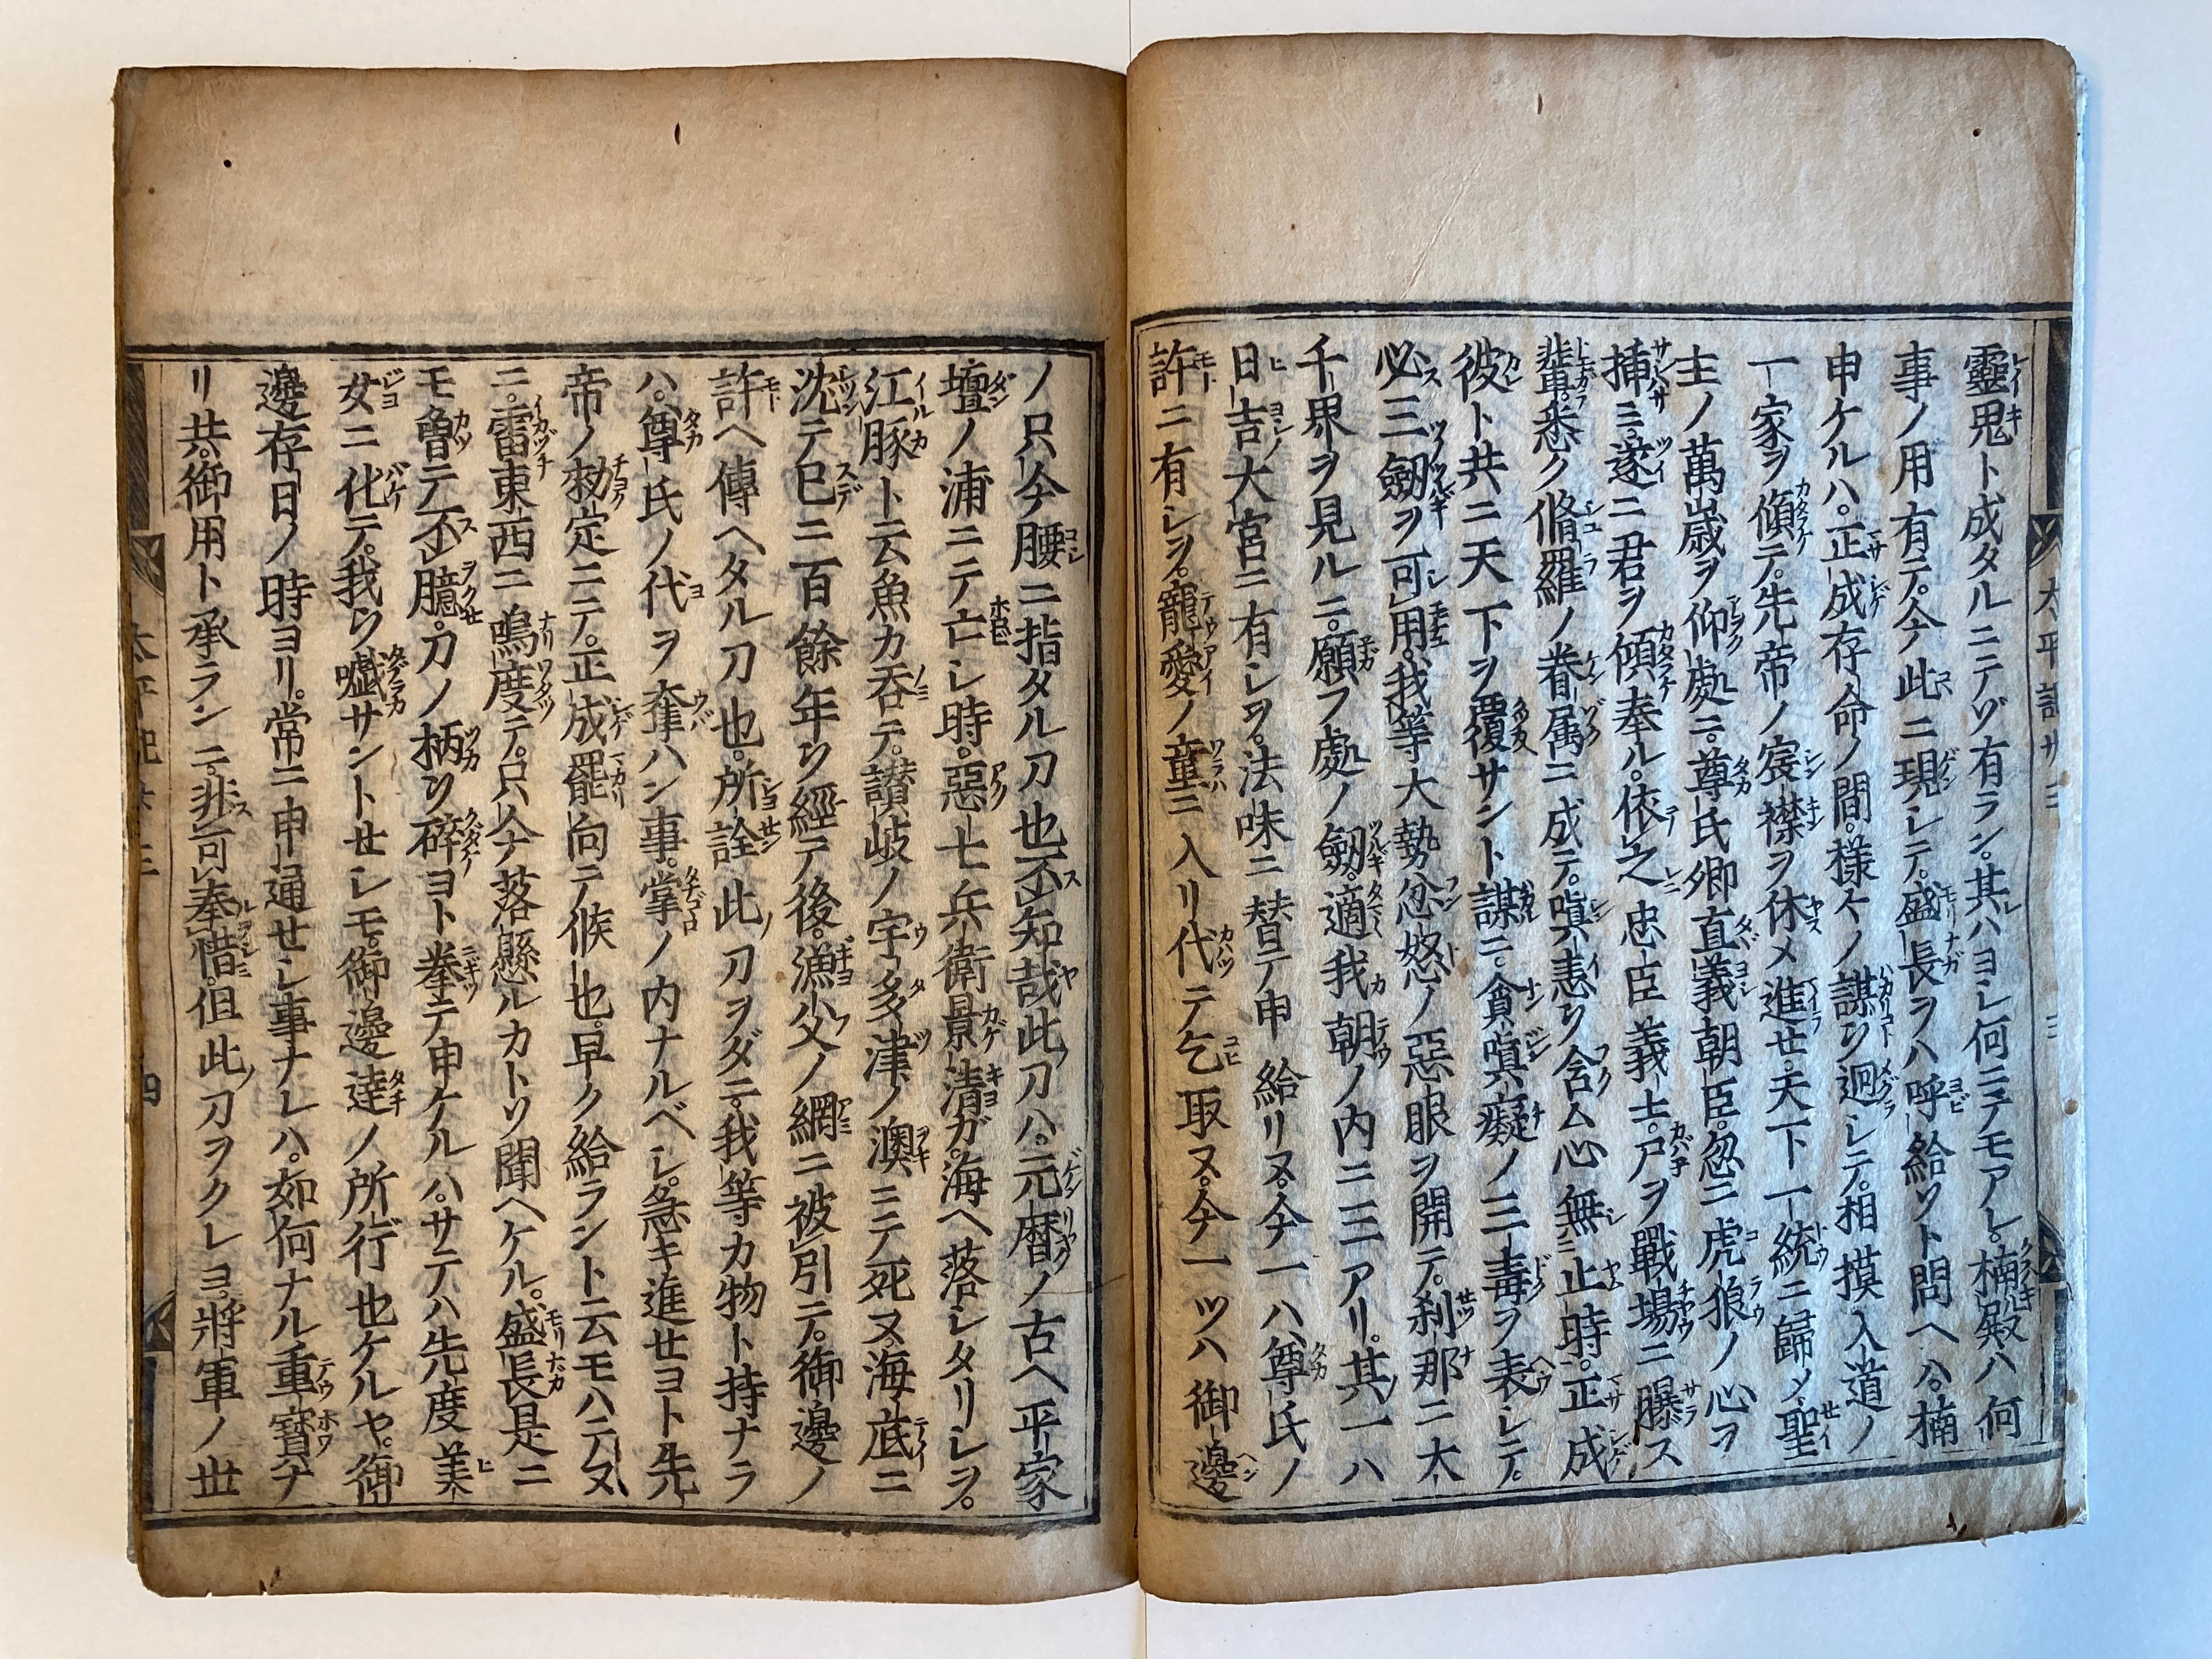 太平記廿三
三
靈鬼ト成タルニテゾ有ラン。其ハヨレ何ニテモアレ。楠殿ハ何
事ノ用有テ。今此ニ現レテ。盛長ヲハ呼給ソト問ヘハ。楠
申ケルハ。正成存命ノ間。樣々ノ謀ヲ廻レテ。相摸入道ノ
一家ヲ傾テ。先帝ノ宸襟ヲ休メ進セ。天下一統ニ歸メ。聖
主ノ萬歳ヲ仰處ニ。尊氏卿直義朝臣。忽ニ虎狼ノ心ヲ
挿ミ。遂ニ君ヲ傾奉ル。依之忠臣義士。尸ヲ戰場ニ曝ス
輩。悉ク脩羅ノ眷属ニ成テ。嗔恚ヲ含ム心無止時。正成
彼ト共ニ天下ヲ覆サント謀ニ。貪嗔癡ノ三毒ヲ表レテ。
必三劔ヲ可用。我等大勢忿怒ノ惡眼ヲ開テ。刹那ニ大
千界ヲ見ルニ。願フ處ノ劔。適我朝ノ内ニ三アリ。其一ハ
日吉大宮ニ有レヲ。法味ニ替テ申給リヌ。今一ハ尊氏ノ
許ニ有レヲ。寵愛ノ童ニ入リ代テ乞取ヌ。今一ツハ御邊
ノ只今腰ニ指タル刀也。不知哉此刀ハ。元暦ノ古ヘ平家
壇ノ浦ニテ亡レ時。惡七兵衛景清ガ。海ヘ落レタリレヲ。
江豚ト云魚カ呑テ。讃岐ノ宇多津ノ澳ニテ死ヌ。海底ニ
沈テ已ニ百餘年ヲ經テ後。漁父ノ網ニ被引テ。御邊ノ
許ヘ傳ヘタル刀也。所詮此刀ヲダニ。我等カ物ト持ナラ
ハ。尊氏ノ代ヲ奪ハン事。掌ノ内ナルベレ。急キ進セヨト先
帝ノ勅定ニテ。正成罷向テ候也。早ク給ラント云モハテヌ
ニ。雷東西ニ鳴度テ。只今落懸ルカトソ聞ヘケル。盛長是ニ
モ曾テ不臆。刀ノ柄ヲ碎ヨト拳テ申ケルハ。サテハ先度美
女ニ化テ。我ヲ嘘サントせレモ。御邊達ノ所行也ケルヤ。御
邊存日ノ時ヨリ。常ニ申通せレ事ナレハ。如何ナル重寳ナ
リ共。御用ト承ランニ。非可奉惜。但此刀ヲクレヨ。將軍ノ世
太平記廿三
四